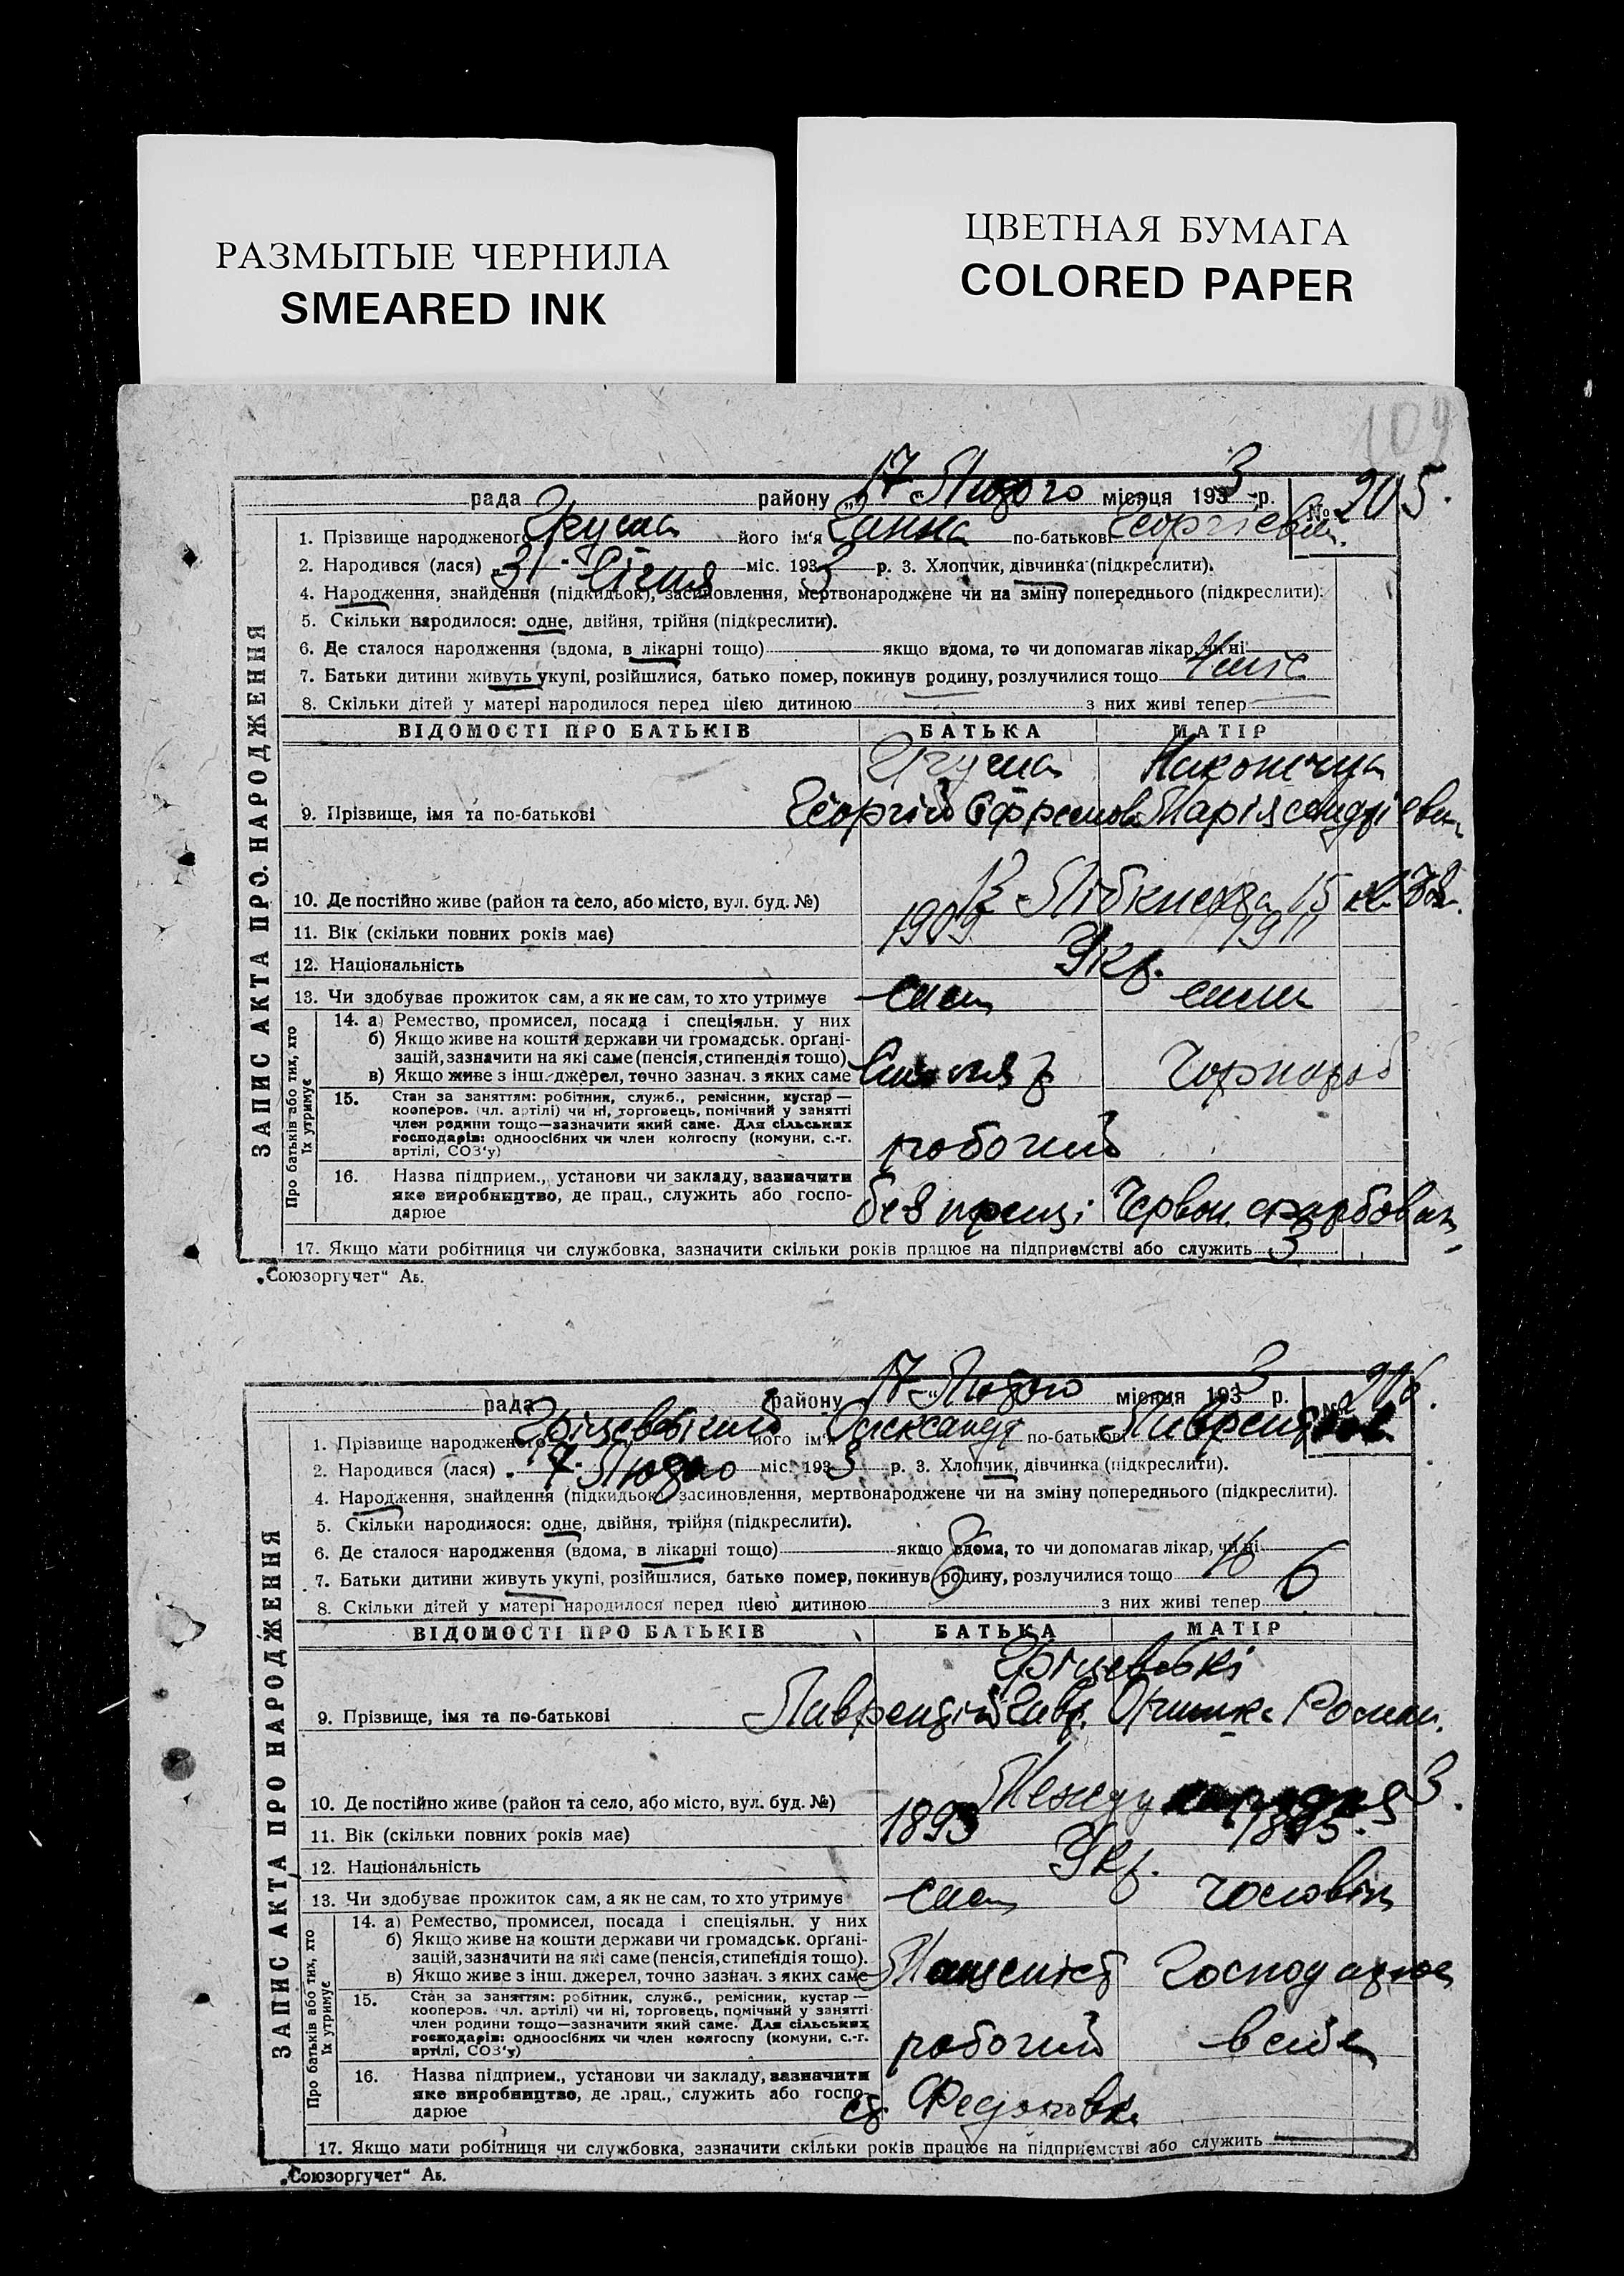 РАЗМЫТЫЕ ЧЕРНИЛА
SMEARED INK
ЦВЕТНАЯ БУМАГА
COLORED PAPER
109
рада району „17“ Лютого місяця 1933 р. № 205.
1. Прізвище народженого Груша його ім‘я Ганна по-батькові Георгіевна
2. Народився (лася) „31“ Січня міс. 1933 р. 3. Хлопчик, дівчинка (підкреслити).
4. Народження, знайдення (підкидьок), засиновлення, мертвонароджене чи на зміну попереднього (підкреслити):
5. Скільки народилося: одне, двійня, трійня (підкреслити).
6. Де сталося народження (вдома, в лікарні тощо) якщо вдома, то чи допомагав лікар, чи ні
7. Батьки дитини живуть укупі, розійшлися, батько помер, покинув родину, розлучилися тощо
8. Скільки дітей у матері народилося перед цією дитиною з них живі тепер
ЗАПИС АКТА ПРО НАРОДЖЕННЯ
ВІДОМОСТІ ПРО БАТЬКІВ БАТЬКА МАТІР
Груша
9. Прізвище, імя та по-батькові Георгій Єфремов Марія
10. Де постійно живе (район та село, або місто, вул. буд. №) Лібкнехта 15
11. Вік (скільки повних років має) 1909 1911
12. Національність Укр.
13. Чи здобуває прожиток сам, а як не сам, то хто утримує сам сама
Про батьків або тих, хто їх утримує
14. а) Ремество, промисел, посада і спеціяльн. у них
б) Якщо живе на кошти держави чи громадськ. орґані-
зацій, зазначити на які саме (пенсія, стипендія тощо)
в) Якщо живе з інш. джерел, точно зазнач. з яких саме Чорнороб
15. Стан за заняттям: робітник, служб., ремісник, кустар —
кооперов. (чл. артілі) чи ні, торговець, помічний у занятті
член родини тощо—зазначити який саме. Для сільських
господарів: одноосібних чи член колгоспу (комуни, с.-г.
артілі, СОЗ‘у) робочий
16. Назва підприєм., установи чи закладу, зазначити
яке виробництво, де прац., служить або госпо-
дарює без праці Червон.
17. Якщо мати робітниця чи службовка, зазначити скільки років працює на підприємстві або служить 3
„Союзоргучет“ Аь.
рада району „17“ Лютого місяця 1933 р. № 206.
1. Прізвище народженого його ім‘я Олександр по-батькові
2. Народився (лася) „7“ Лютого міс. 1933 р. 3. Хлопчик, дівчинка (підкреслити).
4. Народження, знайдення (підкидьок), засиновлення, мертвонароджене чи на зміну попереднього (підкреслити).
5. Скільки народилося: одне, двійня, трійня (підкреслити).
6. Де сталося народження (вдома, в лікарні тощо) якщо вдома, то чи допомагав лікар, чи ні
7. Батьки дитини живуть укупі, розійшлися, батько помер, покинув родину, розлучилися тощо
8. Скільки дітей у матері народилося перед цією дитиною з них живі тепер 6
ЗАПИС АКТА ПРО НАРОДЖЕННЯ
ВІДОМОСТІ ПРО БАТЬКІВ БАТЬКА МАТІР
9. Прізвище, імя та по-батькові
10. Де постійно живе (район та село, або місто, вул. буд. №)
11. Вік (скільки повних років має) 1893 1895
12. Національність Укр.
13. Чи здобуває прожиток сам, а як не сам, то хто утримує сам чоловік
Про батьків або тих, хто їх утримує
14. а) Ремество, промисел, посада і спеціяльн. у них
б) Якщо живе на кошти держави чи громадськ. орґані-
зацій, зазначити на які саме (пенсія, стипендія тощо).
в) Якщо живе з інш. джерел, точно зазнач. з яких саме Машеніст Господарює
15. Стан за заняттям: робітник, служб., ремісник, кустар —
кооперов. чл. артілі) чи ні, торговець, помічний у занятті
член родини тощо—зазначити який саме. Для сільських
господарів: одноосібних чи член колгоспу (комуни, с.-г.
артілі, СОЗ‘у) робочий в себе
16. Назва підприєм., установи чи закладу, зазначити
яке виробництво, де прац., служить або госпо-
дарює ст. Федоровка
17. Якщо мати робітниця чи службовка, зазначити скільки років працює на підприємстві або служить
„Союзоргучет“ Аь.